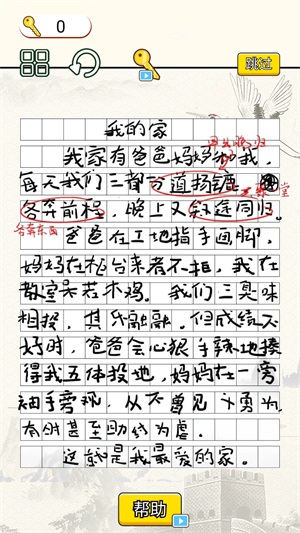 0
跳过
我的家
我家有爸爸妈妈和我，
每天我们三都分道扬镳，
各奔前程，晚上又殊途同归。
各奔东西
爸爸在工地指手画脚，
妈妈在柜台来者不拒，我在
教室呆若木鸡。我们三臭味
相投，其乐融融。但成绩不
好时，爸爸会心狠手辣地揍
得我五体投地，妈妈在一旁
袖手旁观，从不曾见义勇为，
有时甚至助纣为虐。
这就是我最爱的家。
帮助